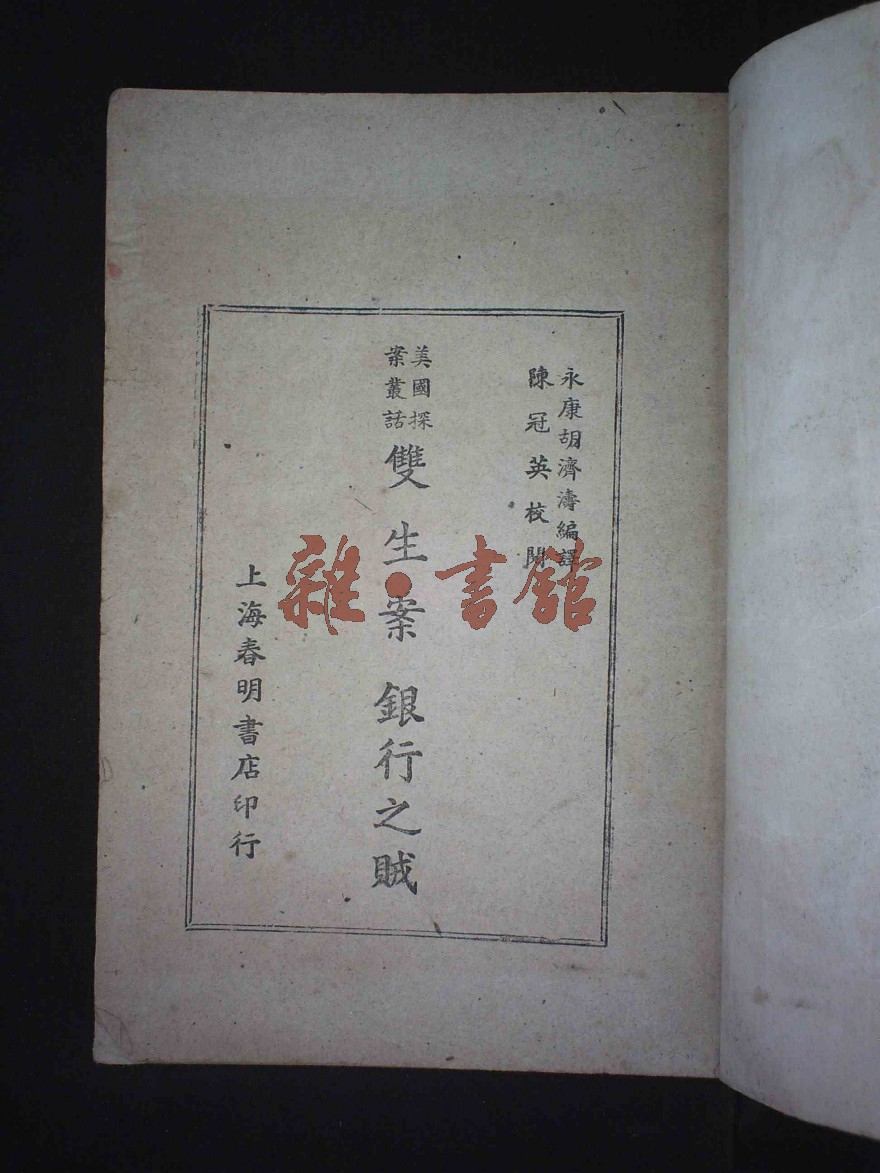 永康胡濟濤編譯
陳冠英校閱
美國探
案叢話
雙生案 銀行之賊
上海春明書店印行
雜·書館